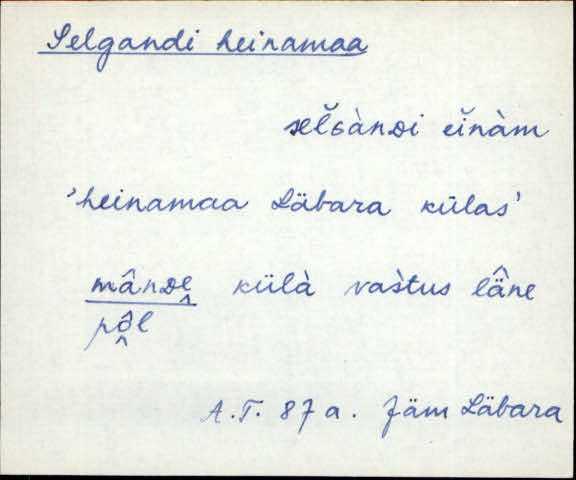 Selgandi heinamaa
selɢàndi eĭnàm
'heinamaa Läbara külas'
mândẹ külà vastus lâ̈ne
pộl
A.T. 87 a. Jäm Läbara